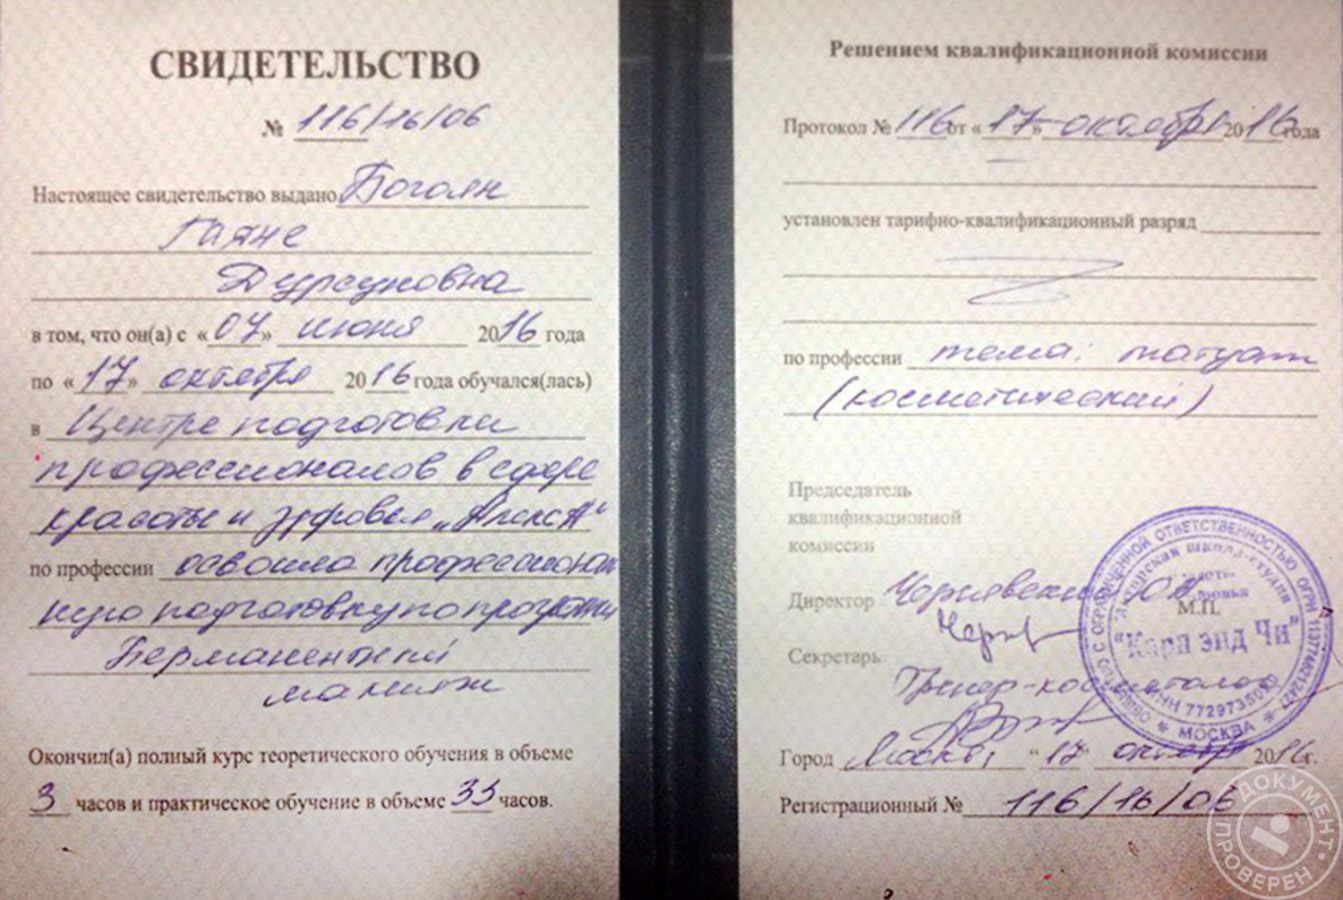 СВИДЕТЕЛЬСТВО
№ 116/16/06
Настоящее свидетельство выдано Погоян
Гаяне
Дурсуновна
в том, что он(а) с «07» июня 2016 года
по «17» октября 2016 года обучался(лась)
в Центре подготовки
профессионалов в сфере
красоты и здоровья „АлексА“
по профессии освоила профессиональ
ную подготовку по программе
Перманентный
макияж
Окончил(а) полный курс теоретического обучения в объеме
3 часов и практическое обучение в объеме 33 часов.
Решением квалификационной комиссии
Протокол № 116 от «17» октября 2016 года
установлен тарифно-квалификационный разряд
по профессии тема: татуаж
(косметический)
Председатель
квалификационной
комиссии
Директор Чернявский
М.П.
Секретарь
Тренер-косметолог
Город Москва "17" октября 2016 г.
Регистрационный № 116/16/06
С ОГРАНИЧЕННОЙ ОТВЕТСТВЕННОСТЬЮ ОГРН
"Авторская школа-студия
"Карл энд Чи"
ИНН
* МОСКВА *
ДОКУМЕНТ ПРОВЕРЕН